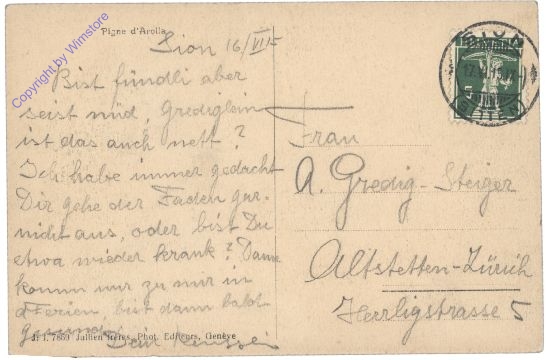 Copyright by Wimstore
Pigne d'Arolla
Sion 16/VI 15
Bist fündli aber
seist nüd, Grediglein
ist das auch nett?
Ich habe immer gedacht
Dir gehe der Faden gar
nicht aus, oder bist Du
etwa wieder krank? Dann
komm nur zu mir in
Ferien, bist dann bald
gesund.
Dein
J. J. 7859 Jullien frères, Phot. Editeurs, Genève
Frau
A. Gredig-Steiger
Altstetten-Zürich
Herrligstrasse 5
SION
SITTEN